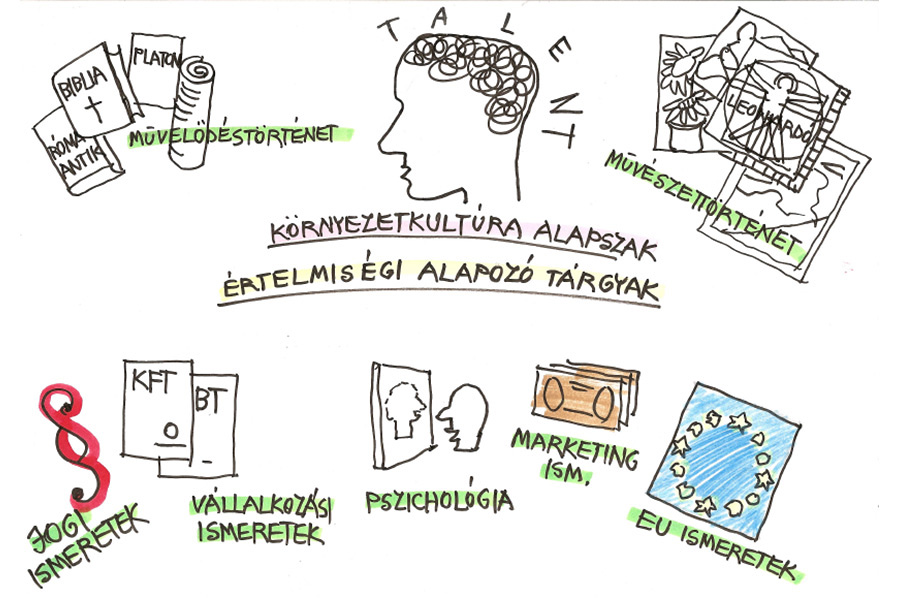 TALENT
BIBLIA
PLATON
RÓMA
ANTIK
MŰVELŐDÉSTÖRTÉNET
LEONARDO
MŰVÉSZETTÖRTÉNET
KÖRNYEZETKULTÚRA ALAPSZAK
ÉRTELMISÉGI ALAPOZÓ TÁRGYAK
KFT
BT
JOGI
ISMERETEK
VÁLLALKOZÁSI
ISMERETEK
PSZICHOLÓGIA
MARKETING
ISM.
EU ISMERETEK